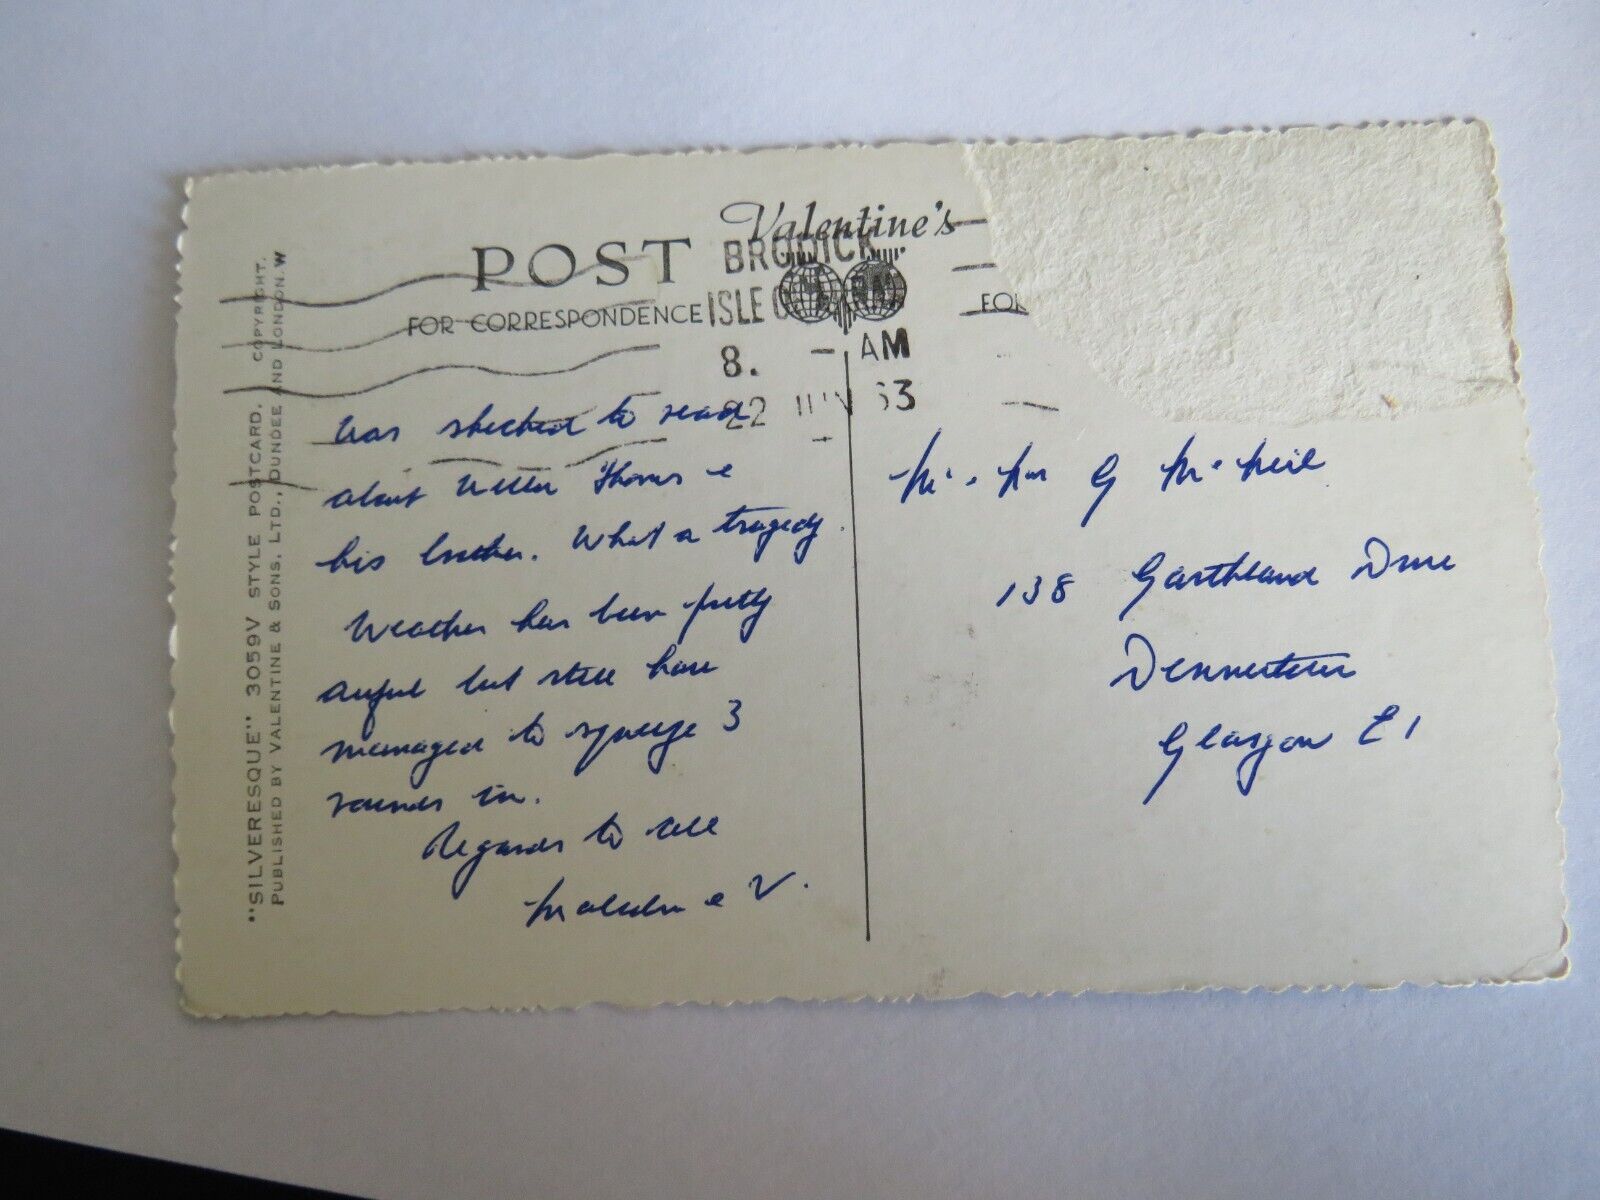 Valentine's
POST
FOR CORRESPONDENCE
FOR
BRODICK
ISLE O
8. - AM
22 JUN 63
Was shocked to read
about Thomas &
his brother. What a tragedy.
Weather has been pretty
awful but still have
managed to squeeze 3
rounds in.
Regards to all
Malcolm & V.
Mr. & Mrs G McNeil
138 Garthland Drive
Dennistoun
Glasgow E1
"SILVERESQUE" 3059V STYLE POSTCARD. COPYRIGHT.
PUBLISHED BY VALENTINE & SONS. LTD., DUNDEE AND LONDON. W